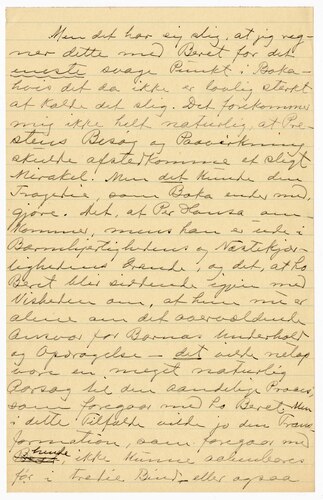 Men det har sig slig, at jeg reg-
ner dette med Beret for det
eneste svage Punkt i Boka –
hvis det da ikke er lovlig sterkt
at kalde det slig. Det forekommer
mig ikke helt naturlig, at Pre-
stens Besøg og Paavirkning
skulde afstedkomme et sligt
Mirakel. Men det kunde den
Tragedie, som Boka ender med,
gjøre. Det, at Per Hansa om-
kommer, mens han er ude i
Barmhjertighedens og Næstekjær-
lighedens Ærende, og det, at
Beret blir siddende igjen med
Visheden om, at hun nu er
alene om det overvældende
Ansvar for Barnas Underhold
og Opdragelse – det vilde netop
være en meget naturlig
Aarsag til den aandelige Proces,
som foregaar med Beret. Men
i dette Tilfælde vilde jo den Trans-
formation, som foregaar med
hende, ikke kunne aabenbares
før i tredie Bind – eller ogsaa